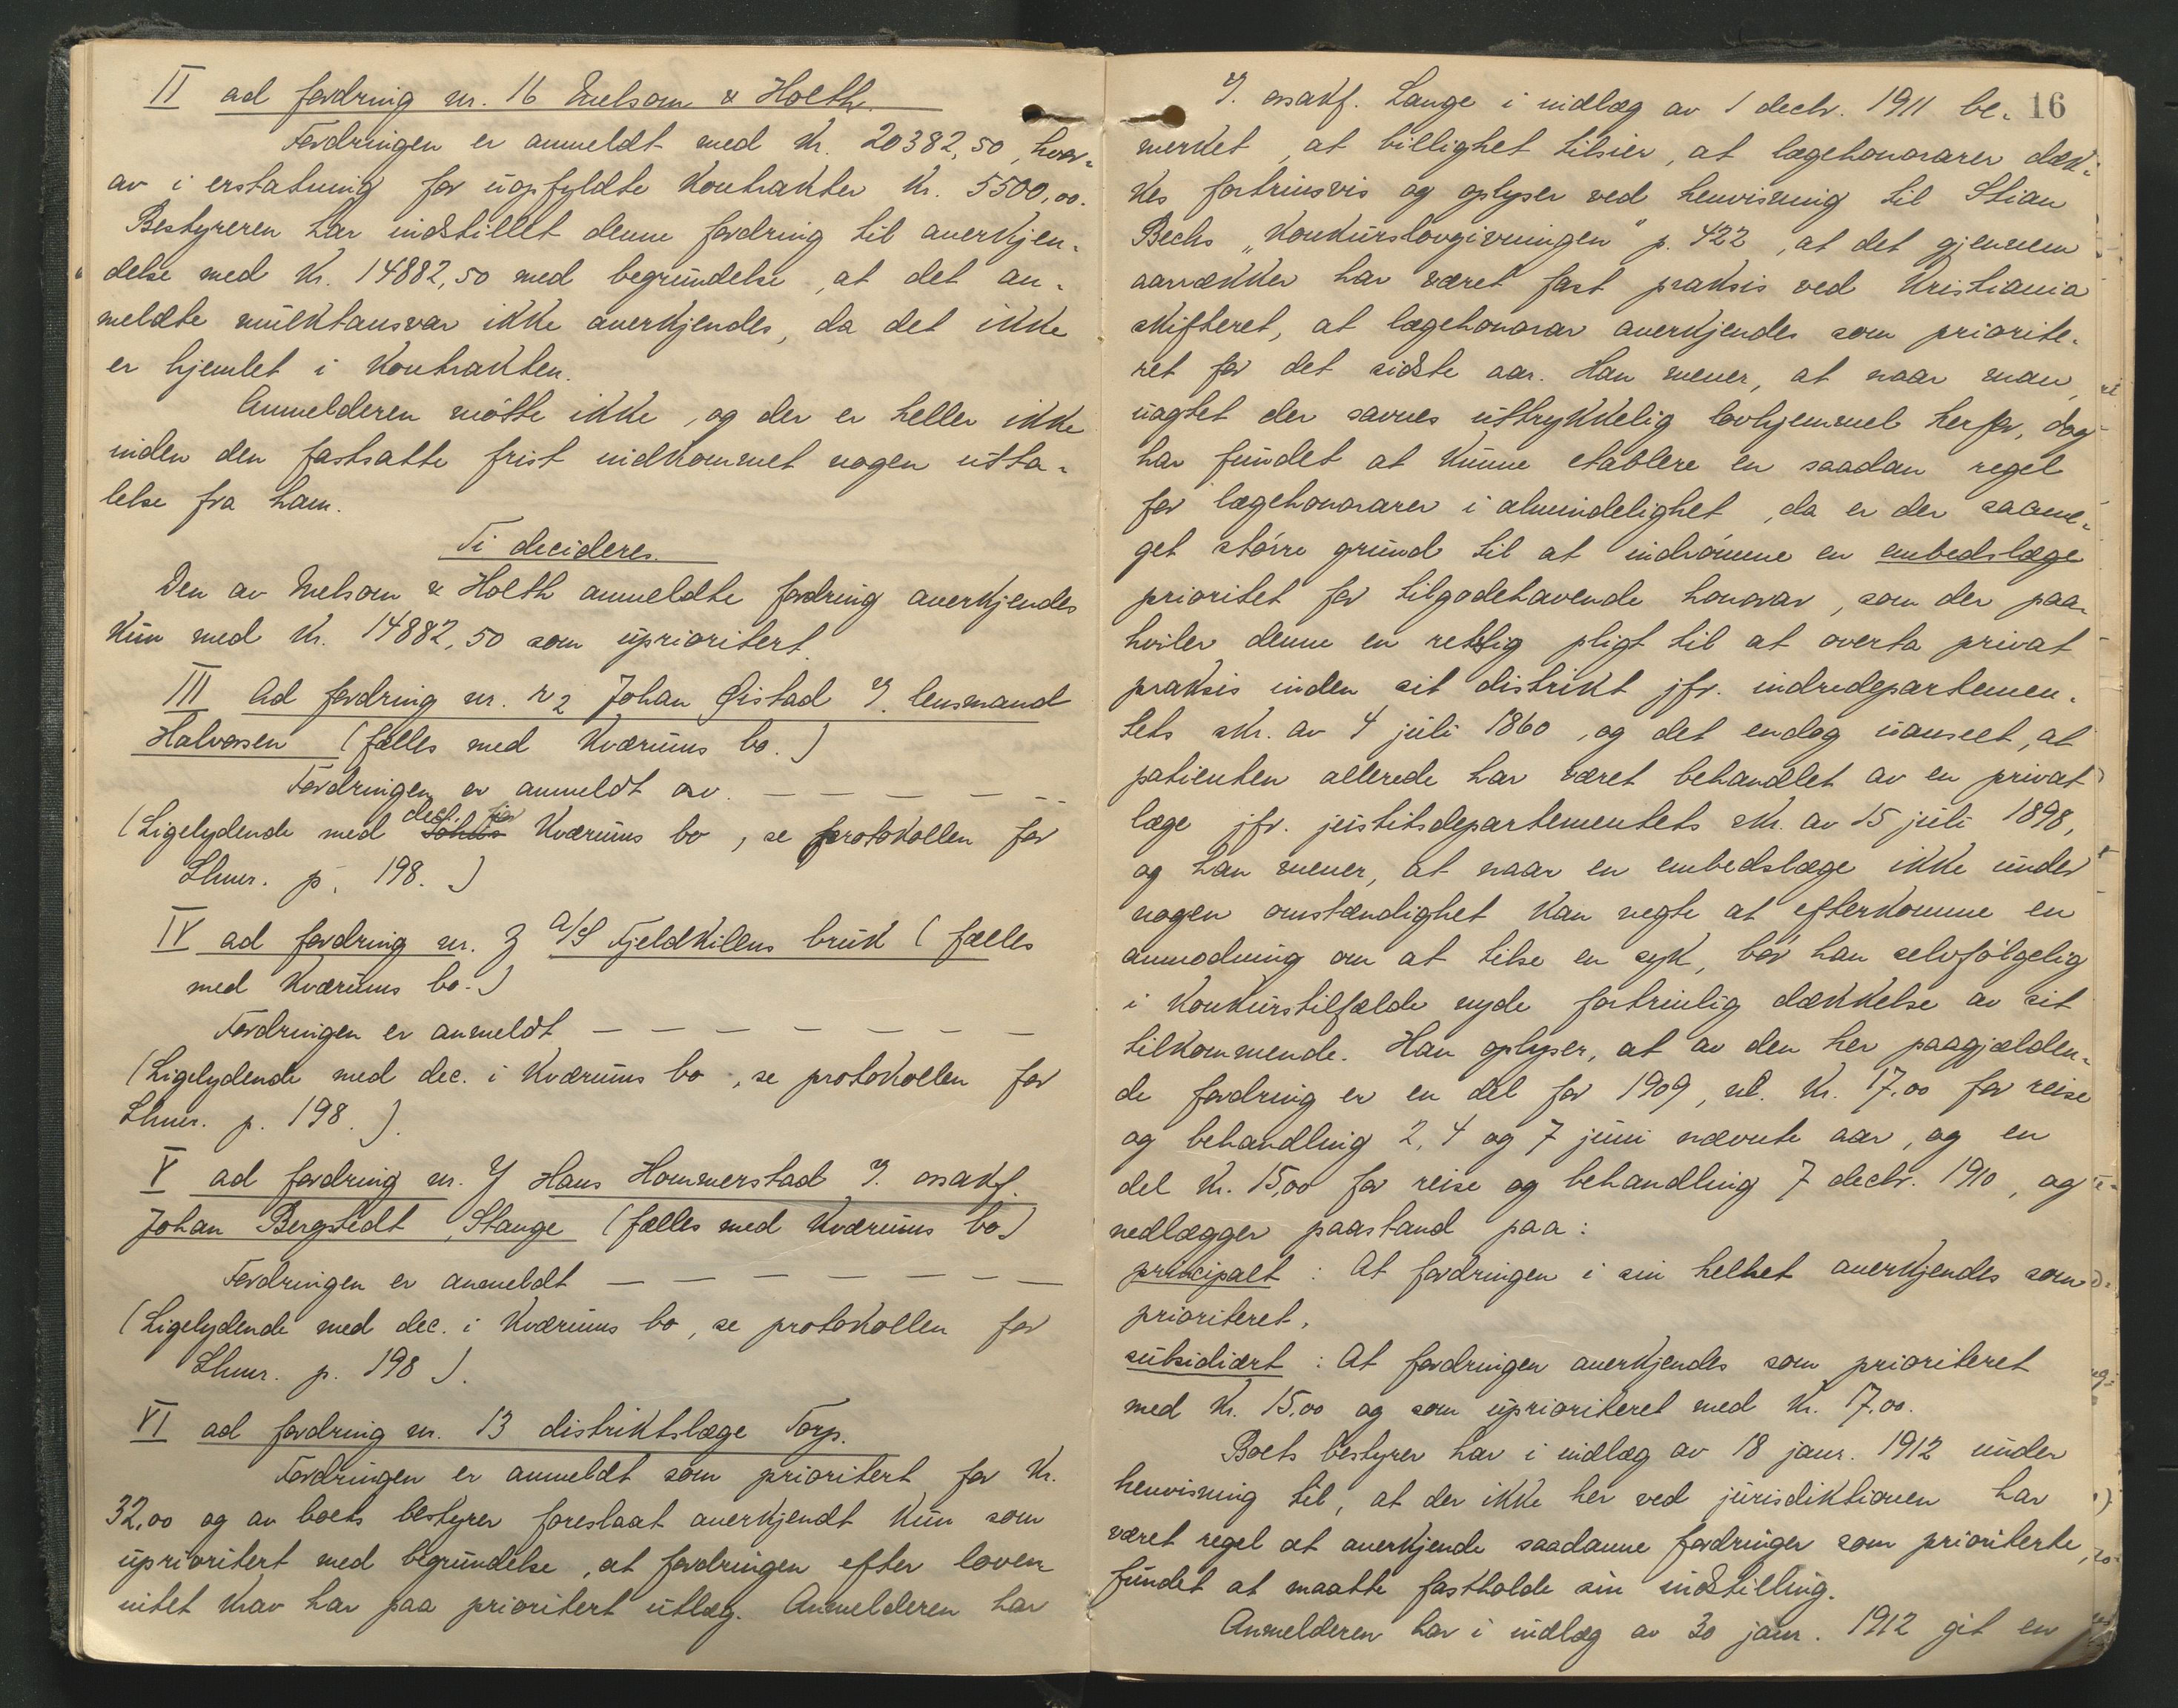 II ad fordring nr. 16 Melsom & Holth.
Fordringen er anmeldt med kr. 20382,50, hvor-
av i erstatning for uopfyldte kontrakter kr. 5500,00.
Bestyreren har indstillet denne fordring til anerkjen-
delse med kr. 14882,50 med begrundelse, at det an-
meldte mulktansvar ikke anerkjendes, da det ikke
er hjemlet i kontrakten.
Anmelderen møtte ikke, og der er heller ikke
inden den fastsatte frist indkommet nogen utta-
lelse fra ham.
Ti decideres.
Den av Melsom & Holth anmeldte fordring anerkjendes
kun med kr. 14882,50 som uprioritert.
III Ad fordring nr. 2 Johan Øistad v. lensmand
Halvorsen (fælles med Kværums bo.)
Fordringen er anmeldt av. — — — — — —
(Ligelydende med dec. for Kværums bo, se protokollen for
Lhmr. p. 198.)
IV ad fordring nr. 3 A/S Fjeldkilens bruk (fælles
med Kværums bo.)
Fordringen er anmeldt — — — — — — —
(Ligelydende med dec. i Kværums bo, se protokollen for
Lhmr. p. 198.).
V ad fordring nr. 4 Hans Hommerstad v. ossakf.
Johan Bergstedt, Stange (fælles med Kværums bo)
Fordringen er anmeldt — — — — — — —
(Ligelydende med dec. i Kværums bo, se protokollen for
Lhmr. p. 198).
VI ad fordring nr. 13 distriktslæge Torp.
Fordringen er anmeldt som prioritert for kr.
32,00 og av boets bestyrer foreslaat anerkjendt kun som
uprioritert med begrundelse, at fordringen efter loven
intet krav har paa prioritert utlæg. Anmelderen har
16
v. ossakf. Lange i indlæg av 1 decbr. 1911 be-
merket, at billighet tilsier, at lægehonorarer dæk-
kes fortrinsvis og oplyser ved henvisning til Stian
Bechs „Konkurslovgivningen" p. 422, at det gjennem
aarrækker har været fast praksis ved Kristiania
skifteret, at lægehonorar anerkjendes som priorite-
ret for det sidste aar. Han mener, at naar man,
uagtet der savnes uttrykkelig lovhjemmel herfor, dog
har fundet at kunne etablere en saadan regel
for lægehonorarer i almindelighet, da er der saame-
get større grund til at indrømme en embedslæge
prioritet for tilgodehavende honorar, som der paa-
hviler denne en retslig pligt til at overta privat
praksis inden sit distrikt jfr. indredepartemen-
tets skr. av 4 juli 1860, og det endog uanseet, at
patienten allerede har været behandlet av en privat
læge jfr. justitsdepartementets skr. av 15 juli 1898,
og han mener, at naar en embedslæge ikke under
nogen omstændighet kan negte at efterkomme en
anmodning om at tilse en syk, bør han selvfølgelig
i konkurstilfælde nyde fortrinlig dækkelse av sit
tilkommende. Han oplyser, at av den her paagjælden-
de fordring er en del for 1909, nl. kr. 17.00 for reise
og behandling 2, 4 og 7 juni nævnte aar, og en
del kr. 15,00 for reise og behandling 7 decbr. 1910, og
nedlægger paastand paa:
principalt: At fordringen i sin helhet anerkjendes som
prioriteret.
subsidiært: At fordringen anerkjendes som prioriteret
med kr. 15,00 og som uprioriteret med kr. 17.00.
Boets bestyrer har i indlæg av 18 janr. 1912 under
henvisning til, at der ikke her ved jurisdiktionen har
været regel at anerkjende saadanne fordringer som prioriterte,
fundet at maatte fastholde sin indstilling.
Anmelderen har i indlæg av 30 janr. 1912 git en